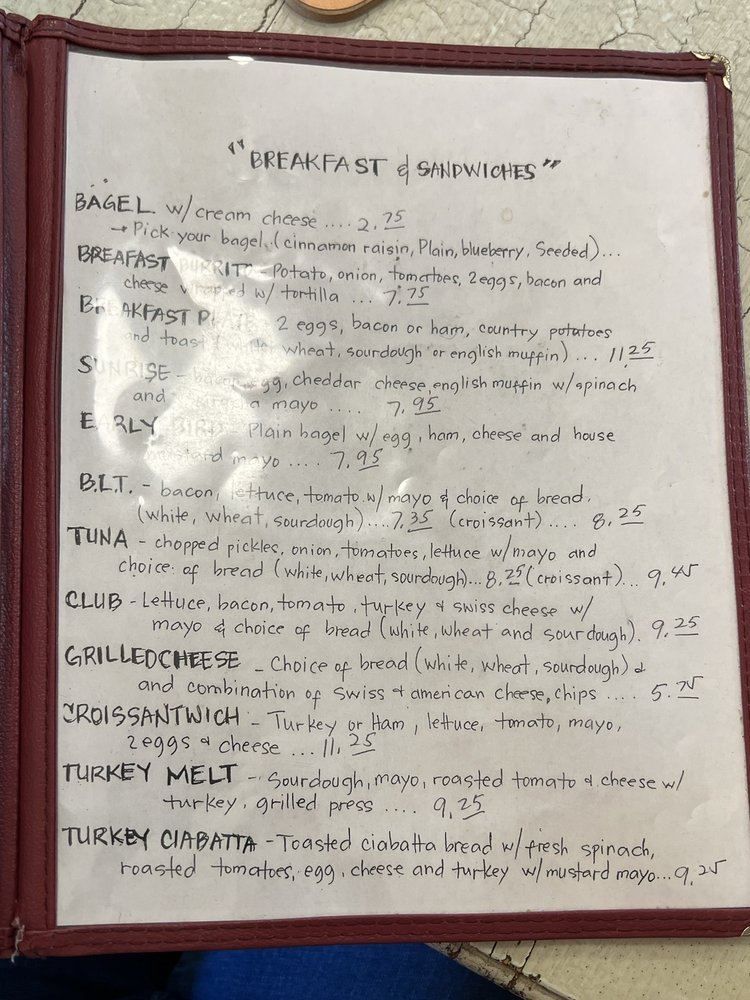 "BREAKFAST & SANDWICHES"
BAGEL w/cream cheese .... 2.75
→ Pick your bagel (cinnamon raisin, Plain, blueberry, Seeded)...
BREAFAST BURRITO - Potato, onion, tomatoes, 2 eggs, bacon and
cheese wrapped w/ tortilla ... 7.75
BREAKFAST PLATE - 2 eggs, bacon or ham, country potatoes
and toast wheat, sourdough or english muffin) ... 11.25
SUNRISE - bacon, egg, cheddar cheese, english muffin w/spinach
and mayo .... 7.95
EARLY BIRD - Plain bagel w/egg, ham, cheese and house
mustard mayo .... 7.95
B.L.T. - bacon, lettuce, tomato w/mayo & choice of bread.
(white, wheat, sourdough)....7.35 (croissant) .... 8.25
TUNA - chopped pickles, onion, tomatoes, lettuce w/mayo and
choice of bread (white, wheat, sourdough)... 8.25 (croissant)... 9.45
CLUB - Lettuce, bacon, tomato, turkey & swiss cheese w/
mayo & choice of bread (white, wheat and sourdough). 9.25
GRILLEDCHEESE - Choice of bread (white, wheat, sourdough) &
and combination of swiss & american cheese, chips .... 5.75
CROISSANTWICH - Turkey or Ham, lettuce, tomato, mayo,
2 eggs & cheese ... 11.25
TURKEY MELT - Sourdough, mayo, roasted tomato & cheese w/
turkey, grilled press .... 9.25
TURKEY CIABATTA - Toasted ciabatta bread w/fresh spinach,
roasted tomatoes, egg, cheese and turkey w/mustard mayo... 9.25